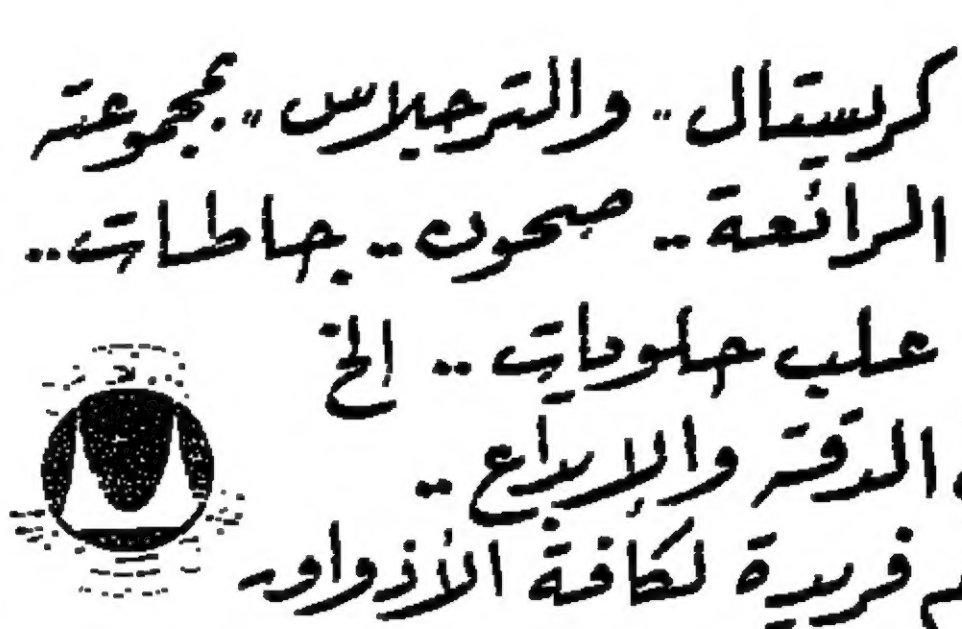 كريستال" والترجلاس" بمجموعته
الرائعة .. صحون .. جاطات ..
علب حلويات .. الخ
الدقة والإبداع ..
فريدة لكافة الأذواق